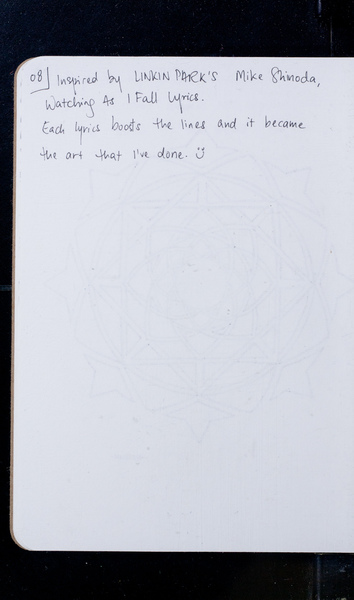 08] Inspired by LINKIN PARK'S Mike Shinoda,
Watching As I Fall Lyrics.
Each lyrics boosts the lines and it became
the art that I've done. ツ